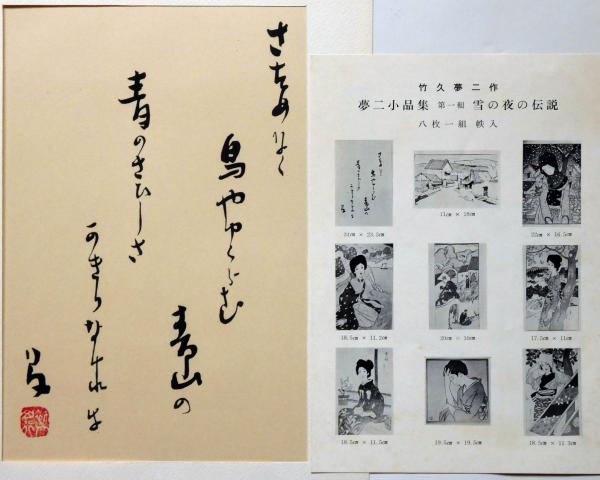 さためなく
鳥やゆくらむ
青山の
青のさひしさ
かきりなけれは
竹久夢二作
夢二小品集 第一輯 雪の夜の伝説
八枚一組 帙入
22㎝ × 16.5㎝
18.5㎝ × 11.2㎝
20㎝ × 16㎝
17.5㎝ × 11㎝
18.5㎝ × 11.5㎝
19.5㎝ × 19.5㎝
18.5㎝ × 11.3㎝